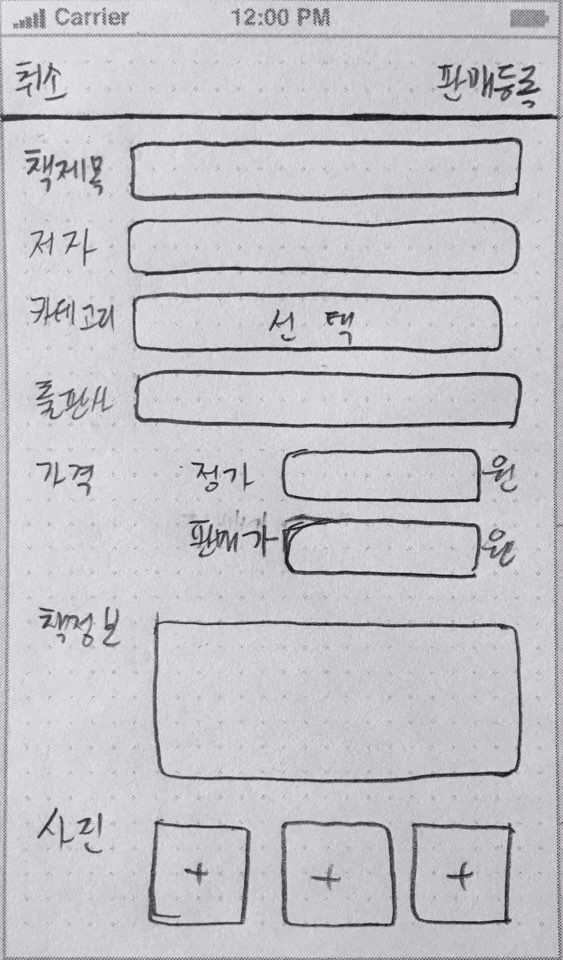 Carrier 12:00 PM
취소 판매등록
책제목
저자
카테고리 선택
출판사
가격 정가 원
판매가 원
책정보
사진
+ + +